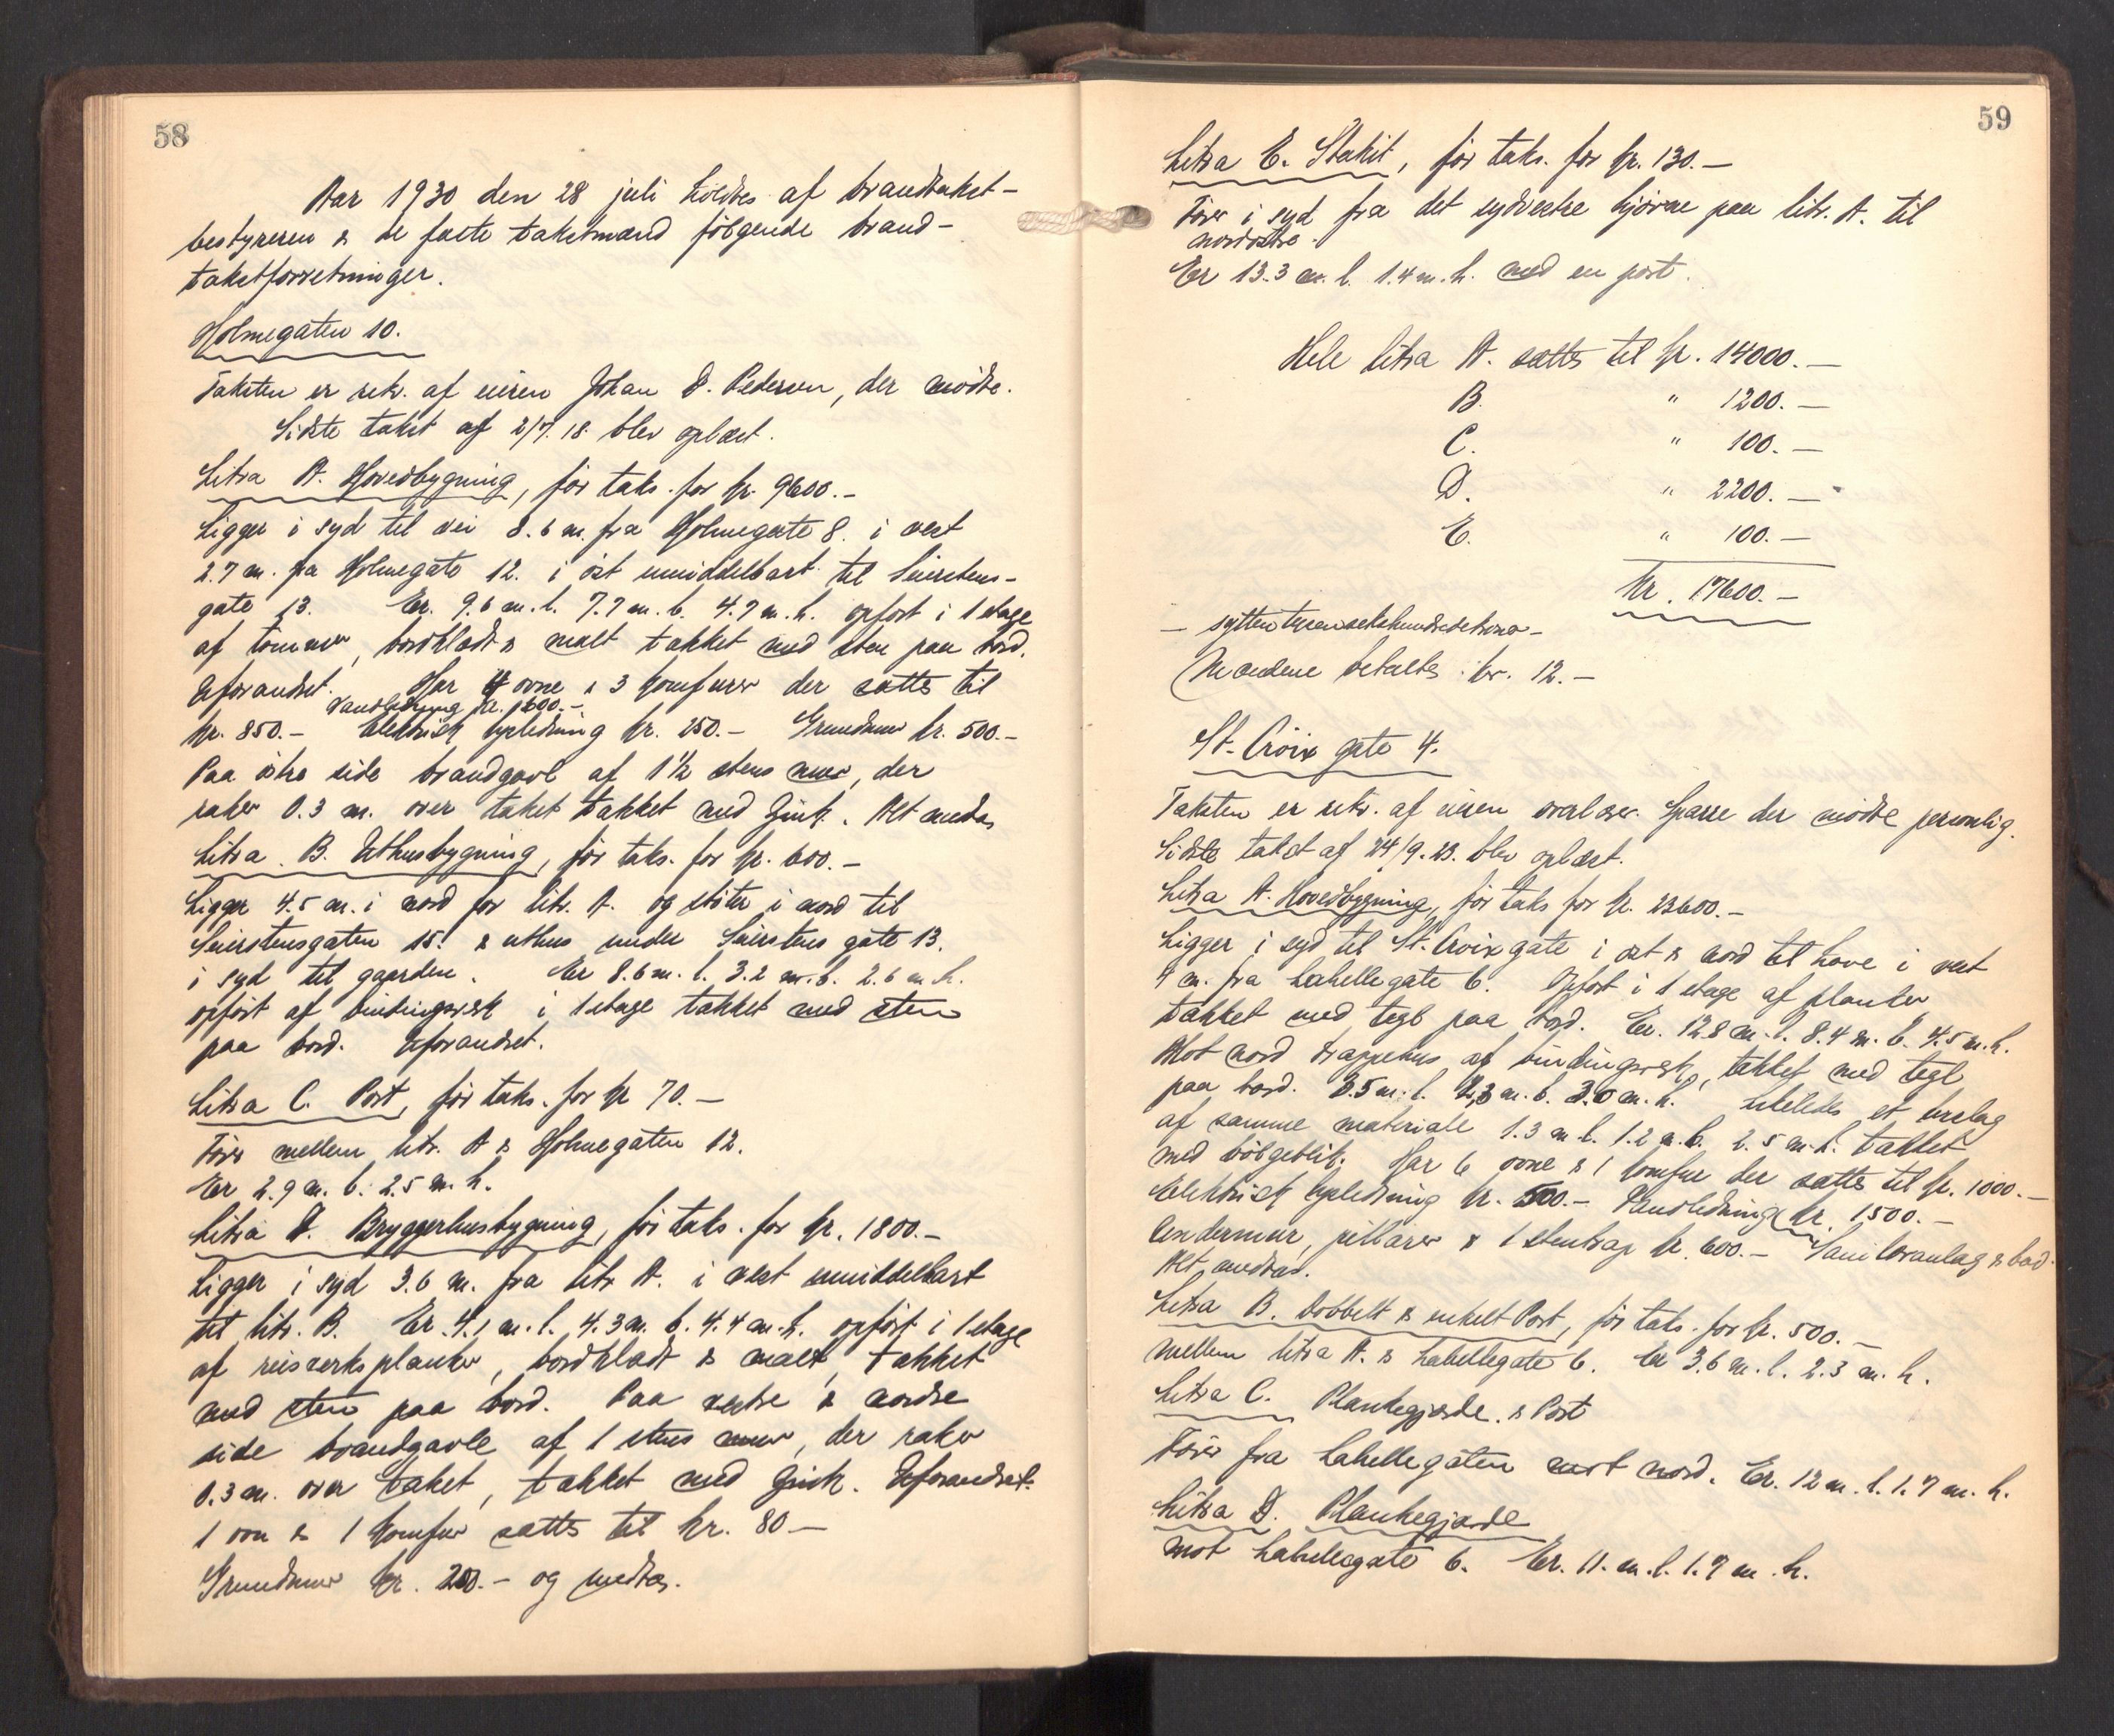 58
Aar 1930 den 28 juli holdtes af brandtakst-
bestyreren & de faste takstmænd følgende brand-
takstforretninger.
Holmegaten 10.
Taksten er rekv. af eieren Johan D. Pedersen, der mødte.
Sidste takst af 2/7. 18. blev oplæst.
Litra A. Hovedbygning, før taks. for kr. 9600.-
Ligger i syd til vei 8.6 m. fra Holmegate 8. i vest
2.7 m. fra Holmegate 12. i øst umiddelbart til Seierstens-
gate 13. Er. 9.6 m. l. 7.7 m. b. 4.7 m. h. opført i 1 etage
af tømmer, bordklædt & malt takket med sten paa bord.
Uforandret. Har 4 ovne & 3 komfurer der sættes til
Vandledning kr. 1600.-
kr. 850.- Elektrisk lysledning kr. 250.- Grundmur kr. 500.-
Paa østre side brandgavl af 1½ stens mur, der
raker 0.3 m. over taket takket med zink. Alt medtas
Litra B. Uthusbygning, før taks. for kr. 600.-
Ligger 4.5 m. i nord for litr. A. og støter i nord til
Seierstensgaten 15. & uthus under Seierstens gate 13.
i syd til gaarden. Er 8.6 m. l. 3.2 m. b. 2.6 m. h.
opført af bindingsverk i 1 etage takket med sten
paa bord. Uforandret.
Litra C. Port, før taks. for kr 70.-
Fører mellem litr. A & Holmegaten 12.
Er 2.9 m. b. 2.5 m. h.
Litra D. Bryggerhusbygning, før taks. for kr. 1800.-
Ligger i syd 3.6 m. fra litr A. i vest umiddelbart
til litr. B. Er. 4.1 m. l. 4.3 m. b. 4.4 m. h. opført i 1 etage
af reisverksplanker, bordklædt & malt, takket
med sten paa bord. Paa vestre & nordre
side brandgavle af 1 stens mur, der raker
0.3 m. over taket, takket med zink. Uforandret.
1 ovn & 1 komfur sættes til kr. 80-
Grundmur kr. 200.- og medtas.
59
Litra E. Stakit, før taks. for kr. 130.-
Fører i syd fra det sydvestre hjørne paa litr. A. til
nordøstre.
Er 13.3 m. l. 1.4 m. h. med en port.
Hele litra A. sættes til kr. 14000.-
B. " 1200.-
C. " 100.-
D. " 2200.-
E. " 100.-
Kr. 17600.-
- sytten tusen sekshundrede kroner -
Mændene betaltes: kr. 12.-
St. Croix gate 4.
Taksten er rekv. af eieren overlærer Sparre der mødte personlig.
Sidste takst af 24/9. 23. blev oplæst.
Litra A. Hovedbygning, før taks for kr. 23600.-
Ligger i syd til St. Croix gate i øst & nord til have i vest
4 m. fra Labellegate 6. Opført i 1 etage af planker
takket med tegl paa bord. Er. 12.8 m. l. 8.4 m. b. 4.5 m. h.
Mot nord trappehus af bindingsverk, takket med tegl
paa bord. 3.5 m. l. 2,3 m. b. 3.0 m. h. Likeledes et bislag
af samme materiale 1.3 m. l. 1.2 m. b. 2.5 m. h. takket
med bølgeblik. Har 6 ovne & 1 komfur der sættes til kr. 1000.-
Elektrisk lysledning kr. 500.- Vandledning kr. 1500.-
Undermur, pillarer & 1 stentrap kr. 600.- Sanitæranlæg & bad
Alt medtas.
Litra B. Dobbelt & enkelt Port, før taks. for kr. 500.-
mellem litra A. & Labellegate 6. Er 3.6 m. l. 2.3 m. h.
Litra C. Plankegjærde. & Port
Fører fra Labellegaten mot nord. Er. 12 m. l. 1.7 m. h.
Litra D. Plankegjærde
mot Labellegate 6. Er. 11. m. l. 1.7 m. h.